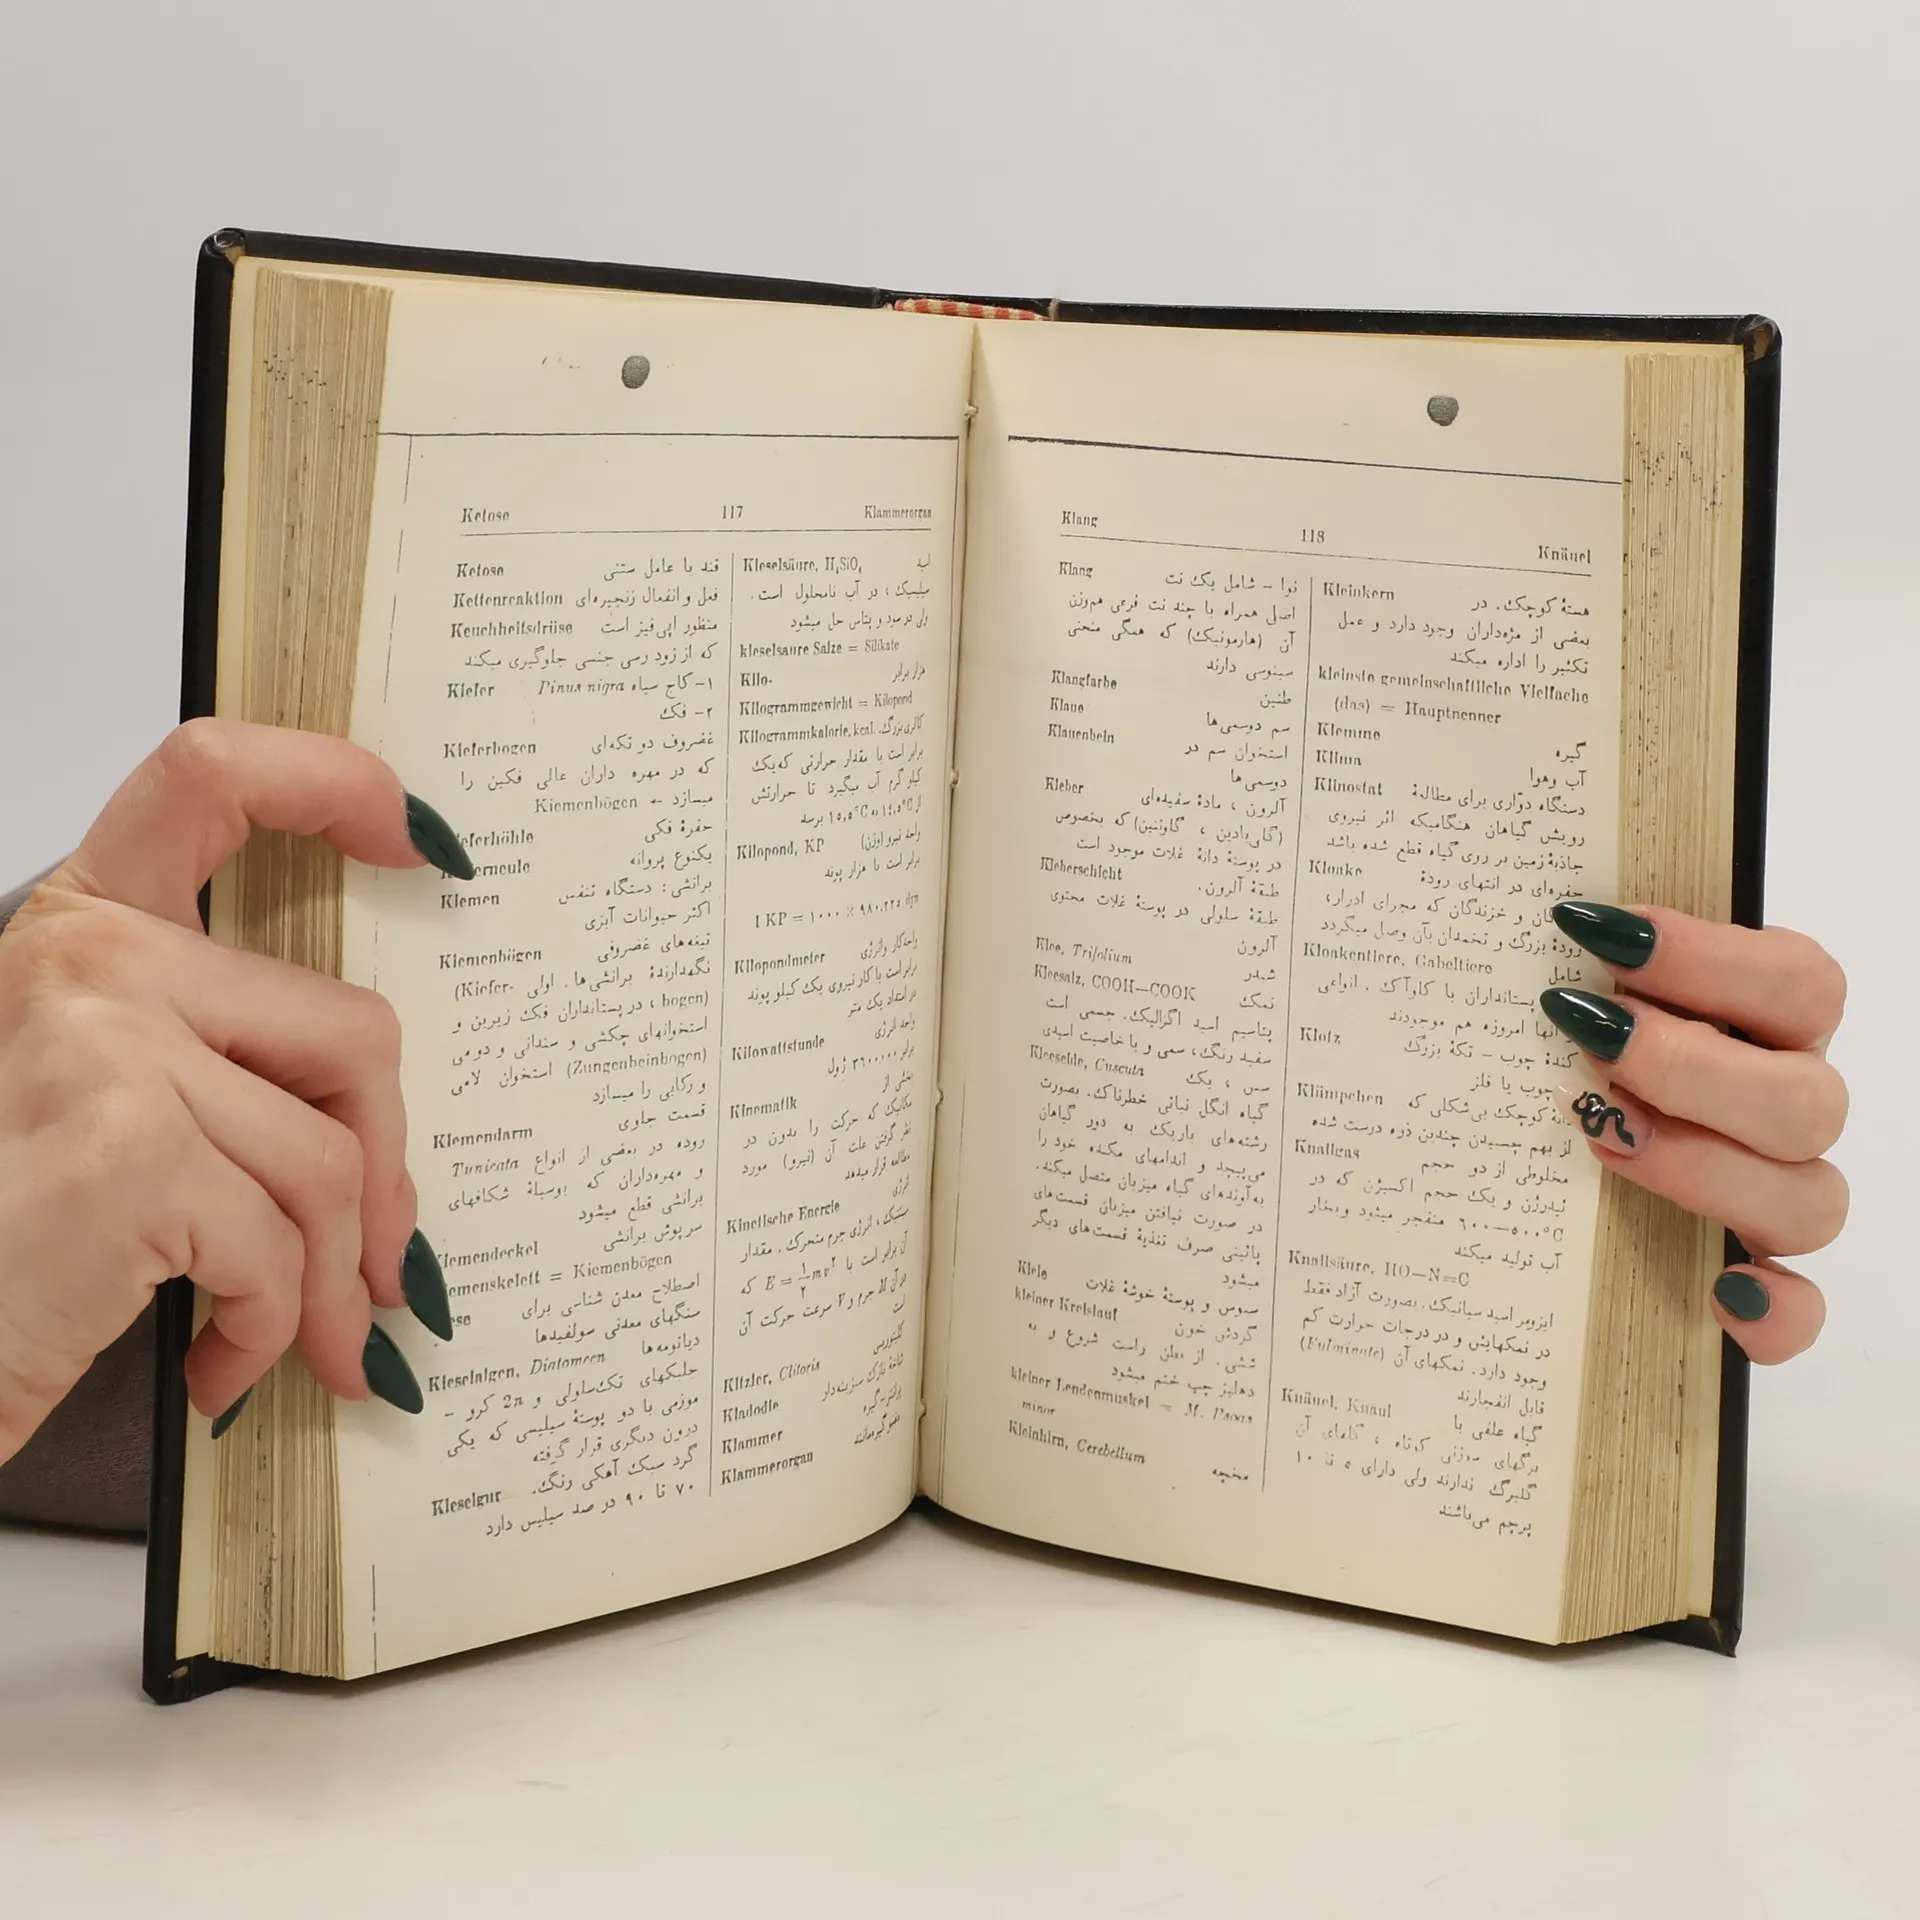 Ketose 117 Klammerorgan
Ketose قند با عامل ستنی
Kettenreaktion فعل و انفعال زنجیره‌ای
Keuchheitsdrüse منظور اپی‌فیز است
که از زود رسی جنسی جلوگیری میکند
Kiefer ۱- کاج سیاه Pinus nigra
۲- فک
Kieferbogen غضروف دو تکه‌ای
که در مهره داران عالی فکین را
میسازد ← Kiemenbögen
ieferhöhle حفرهٔ فکی
erneule یکنوع پروانه
Kiemen برانشی : دستگاه تنفس
اکثر حیوانات آبزی
Kiemenbögen تیغه‌های غضروفی
نگهدارندهٔ برانشی‌ها . اولی (Kiefer-
bogen) ، در پستانداران فک زیرین و
استخوانهای چکشی و سندانی و دومی
(Zungenbeinbogen) استخوان لامی
و رکابی را میسازد
Kiemendarm قسمت جلوی
روده در بعضی از انواع Tunicata
و مهره‌داران که بوسیلهٔ شکافهای
برانشی قطع میشود
iemendeckel سرپوش برانشی
iemenskelett = Kiemenbögen
ese اصطلاح معدن شناسی برای
سنگهای معدنی سولفیدها
Kieselalgen, Diatomeen دیاتومه‌ها
جلبکهای تک‌سلولی و 2n کرو -
موزمی با دو پوستهٔ سیلیسی که یکی
درون دیگری قرار گرفته
Kieselgur گرد سبک آهکی رنگ.
۷۰ تا ۹۰ در صد سیلیس دارد
Kieselsäure, H₄SiO₄ اسید
سیلیسیک ، در آب نامحلول است .
ولی در سود و پتاس حل میشود
kieselsaure Salze = Silikate
Kilo- هزار برابر
Kilogrammgewicht = Kilopond
Kilogrammkalorie, kcal. کالری بزرگ.
برابر است با مقدار حرارتی که یک
کیلو گرم آب میگیرد تا حرارتش
از ۱٤٫٥°C به ۱٥٫٥°C برسد
Kilopond, KP واحد نیرو (وزن)
برابر است با هزار پوند
1 KP = ۱۰۰۰ × ۹۸۰٫۲۲٥ dyn
Kilopondmeter واحد کار و انرژی
برابر است با کار نیروی یک کیلو پوند
در امتداد یک متر
Kilowattstunde واحد انرژی
برابر ۳٦۰۰۰۰۰ ژول
Kinematik بخشی از
مکانیک که حرکت را بدون در
نظر گرفتن علت آن (نیرو) مورد
مطالعه قرار میدهد
Kinetische Energie انرژی
سینتیک ، انرژی جرم متحرک . مقدار
آن برابر است با E = ۱/۲ mv² که
در آن M جرم و V سرعت حرکت آن
است
Kitzler, Clitoris کلیتوریس
Kladodie شاخهٔ نازک سبزینه‌دار
Klammer
Klammerorgan
Klang 118 Knäuel
Klang نوا - شامل یک نت
اصل همراه با چند نت فرعی هم‌وزن
آن (هارمونیک) که همگی منحنی
سینوسی دارند
Klangfarbe طنین
Klaue سم دوسمی‌ها
Klauenbein استخوان سم در
دوسمی‌ها
Kleber آلرون ، مادهٔ سفیده‌ای
(گلی‌یادین ، گلوتنین) که بخصوص
در پوستهٔ دانهٔ غلات موجود است
Kleberschicht طبقهٔ آلرون .
طبقهٔ سلولی در پوستهٔ غلات محتوی
آلرون
Klee, Trifolium شبدر
Kleesalz, COOH—COOK نمک
پتاسیم اسید اگزالیک. جسمی است
سفید رنگ، سمی و با خاصیت اسیدی
Kleeseide, Cuscuta سس ، یک
گیاه انگل نباتی خطرناک. بصورت
رشته‌های باریک به دور گیاهان
می‌پیچد و اندامهای مکنده خود را
به‌آوندهای گیاه میزبان متصل میکند.
در صورت نیافتن میزبان قسمت‌های
پائینی صرف تغذیهٔ قسمت‌های دیگر
میشود
Kleie سبوس و پوستهٔ خوشهٔ غلات
kleiner Kreislauf گردش خون
ششی . از بطن راست شروع و به
دهلیز چپ ختم میشود
kleiner Lendenmuskel = M. Psoas
minor
Kleinhirn, Cerebellum مخچه
Kleinkern هستهٔ کوچک. در
بعضی از مژه‌داران وجود دارد و عمل
تکثیر را اداره میکند
kleinste gemeinschaftliche Vielfache
(das) = Hauptnenner
Klemme گیره
Klima آب وهوا
Klinostat دستگاه دوّاری برای مطالعهٔ
رویش گیاهان هنگامیکه اثر نیروی
جاذبهٔ زمین بر روی گیاه قطع شده باشد
Kloake حفره‌ای در انتهای رودهٔ
گان و خزندگان که مجرای ادرار،
رودهٔ بزرگ و تخمدان بآن وصل میگردد
Kloakentiere, Gabeltiere شامل
پستانداران با کلوآک . انواعی
آنها امروزه هم موجودند
Klotz کندهٔ چوب - تکهٔ بزرگ
چوب یا فلز
Klümpchen دانهٔ کوچک بی‌شکلی که
از بهم چسبیدن چندین ذره درست شده
Knallgas مخلوطی از دو حجم
ئیدرژن و یک حجم اکسیژن که در
٥۰۰—٦۰۰ °C منفجر میشود وبخار
آب تولید میکند
Knallsäure, HO—N=C
ایزومر اسید سیانیک. بصورت آزاد فقط
در نمکهایش و در درجات حرارت کم
وجود دارد. نمکهای آن (Fulminate)
قابل انفجارند
Knäuel, Knaul گیاه علفی با
برگهای سوزنی کوتاه ، گلهای آن
گلبرگ ندارند ولی دارای ٥ تا ۱۰
پرچم می‌باشند